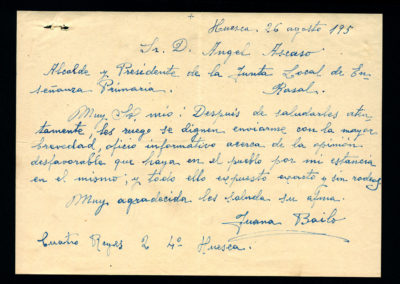 Huesca. 26 agosto 195
Sr. D. Angel Ascaso
Alcalde y Presidente de la Junta Local de En-
señanza Primaria. Rasal.
Muy Sr. mio: Después de saludarles aten-
tamente, les ruego se dignen enviarme con la mayor
brevedad, oficio informativo acerca de la opinión
desfavorable que haya en el pueblo por mi estancia
en el mismo; y todo ello expuesto exacto y sin rodeos
Muy agradecida les saluda su afma.
Juana Bailo
Cuatro Reyes 2 4º Huesca.